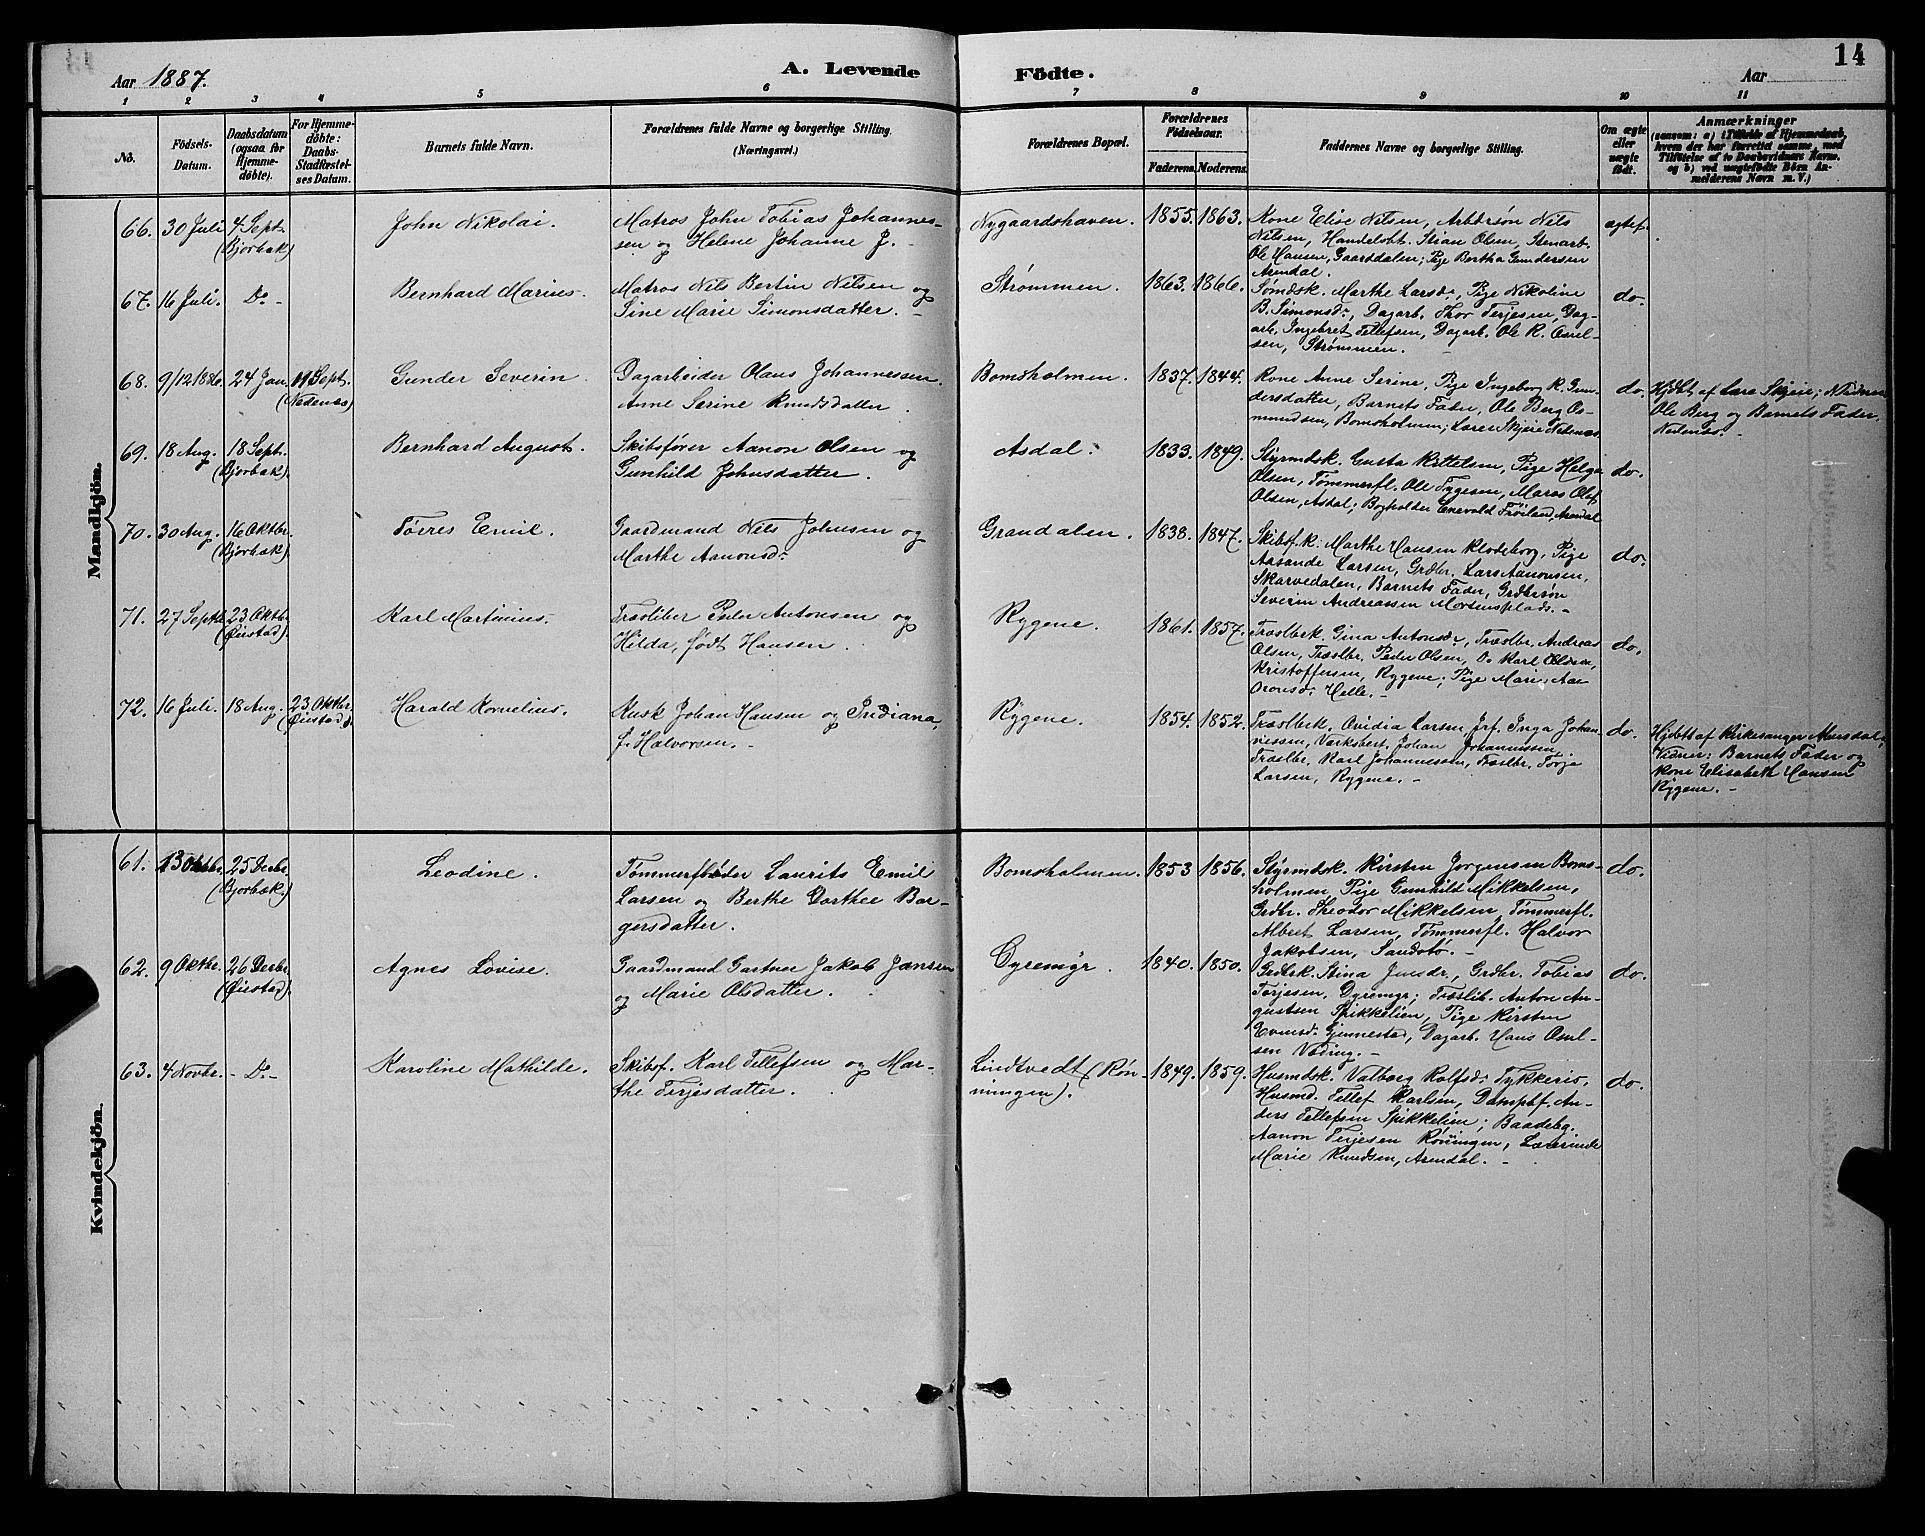 14
Aar 1887.
A. Levende Födte.
Aar
1 2 3 4 5 6 7 8 9 10 11
No.
Födsels-Datum.
Daabsdatum (ogsaa for Hjemme-döbte).
For Hjemme-döbte: Daabs-Stadfæstel-ses Datum.
Barnets fulde Navn.
Forældrenes fulde Navne og borgerlige Stilling. (Næringsvei.)
Forældrenes Bopæl.
Forældrenes Födselsaar.
Faderens. Moderens.
Faddernes Navne og borgerlige Stilling.
Om ægte eller uægte födt.
Anmærkninger
(saasom: a) i Tilfælde af Hjemmedaab, hvem der har forrettet samme, med Tilföielse af to Daabsvidners Navne, og b) ved uægtefödte Börn Anmelderens Navn m. V.)
Mandkjön.
66. 30 Juli 4 Sept. (Bjorbæk) John Nikolai.
Matros John Tobias Johannes-
sen og Helene Johanne J. -
Nygaardshaven. 1855. 1863.
Kone Elise Nilsen, Arbdrsøn Nils
Nilsen, Handelsbt. Stian Olsen, Stenarb.
Ole Hansen, Gaarddalen; Pige Bertha Gundersen
Arendal.
ægtef.
67. 16 Juli. Do - Bernhard Marius.
Matros Nils Bertin Nilsen og
Sine Marie Simonsdatter. -
Strømmen. 1863. 1866.
Sömdsk. Marthe Larsdr, Pige Nikoline
B. Simonsdr, Dagarb. Thor Terjesen, Dag-
arb. Ingebret Tellefsen, Dagarb. Ole R. Osuls-
sen, Strømmen.
do.
68. 9/12 1886. 24 Jan. 11 Sept. (Nedenes) Gunder Severin.
Dagarbeider Olaus Johannessen.
Anne Serine Knudsdatter.
Bomsholmen. 1837. 1844.
Kone Anne Serine, Pige Ingeborg K. Gun-
dersdatter, Barnets Fader, Ole Berg Os-
mundsen, Bomsholmen; Lærer Skjeie Nedenes.
do.
Hjdbt af Lærer Skjeie;
Ole Berg og Barnets Fader.
Nedenes. -
69. 18 Aug. 18 Sept. (Bjorbæk). Bernhard August.
Skibsfører Aanon Olsen og
Gunhild Johnsdatter.
Asdal. 1833. 1849.
Styrmdsk. Gusta Kittelsen, Pige Helga
Olsen, Tømmerfl. Ole Tygesen, Matros Olaf
Olsen, Asdal; Bogholder Enevold Frøiland, Arendal
do.
70. 30 Aug. 16 Oktbr. (Bjorbæk) Tøres Emil.
Gaardmand Nils Johnsen og
Marthe Aanonsdr.
Grandalen. 1838. 1847.
Skibsf.k. Marthe Hansen Klodeborg, Pige
Aasande Larsen, Grdbr. Lars Aanonsen,
Skarvedalen, Barnets Fader, Grdbrsøn
Severin Andreassen Mortensplads. -
do.
71. 27 Septb. 23 Oktbr. (Øiestad). Karl Martinius.
Træsliber Peder Antonsen og
Hilda, født Hansen.
Rygene. 1861. 1857.
Træslbrk. Gina Antonsdr, Træslbr. Andreas
Olsen, Træslbr. Peder Olsen, Do Karl Olsen,
Kristoffersen, Rygene; Pige Marie Aa-
Helle. -
do.
72. 16 Juli. 18 Aug. 23 Oktbr. (Øiestad). Harald Kornelius.
Kusk Johan Hansen og Indiana,
f. Halvorsen. -
Rygene. 1854. 1852.
Træslbrk. Ovidia Larsen, Jrf. Inga Johan-
nessen, Værksbest. Johan Johannessen,
Træslbr. Karl Johannessen, Træslbr. Torje
Larsen, Rygene. -
do.
Hjdbt af Kirkesanger
Vidner: Barnets Fader og
Kone Elisabeth Hansen
Rygene. -
Kvindekjön.
61. 13 Oktbr. 25 Decbr. (Bjorbæk.) Leodine.
Tømmerfløder Laurits Emil
Larsen og Berthe Dorthee Bør-
gersdatter.
Bomsholmen. 1853 1856.
Styrmdsk. Kirsten Jørgensen Boms-
holmen, Pige Gunhild Mikkelsen,
Grdbr. Theodor Mikkelsen, Tømmerfl.
Albret Larsen, Tømmerfl. Halvor
Jakobsen, Sandstø. -
do.
62. 9 Oktbr. 26 Decbr. (Øiestad). Agnes Lovise.
Gaardmand Gartner Jakob Jensen
og Marie Olsdatter.
Dyremyr. 1840. 1850.
Grdbrk. Stina Jensdr, Grdbr. Tobias
Terjesen, Dyremyr; Træslib. Anton Au-
gustsen Spikkelien, Pige Kirsten
Evensdr Gjennestad, Dagarb. Hans Osul-
sen Vøding. -
do.
63. 4 Novbr. - Do - Karoline Mathilde.
Skibsf. Karl Tellefsen og Mar-
the Terjesdatter.
Lindtvedt (Røn-
ningen). 1849. 1859.
Husmdsk. Valborg Rolfsdr Tykkeris,
Husmd. Tellef Karlsen, Dampbf. An-
ders Tellefsen Spikkelien; Baadsbg.
Aanon Terjesen Røningen, Lærerinde
Marie Knudsen, Arendal. -
do.